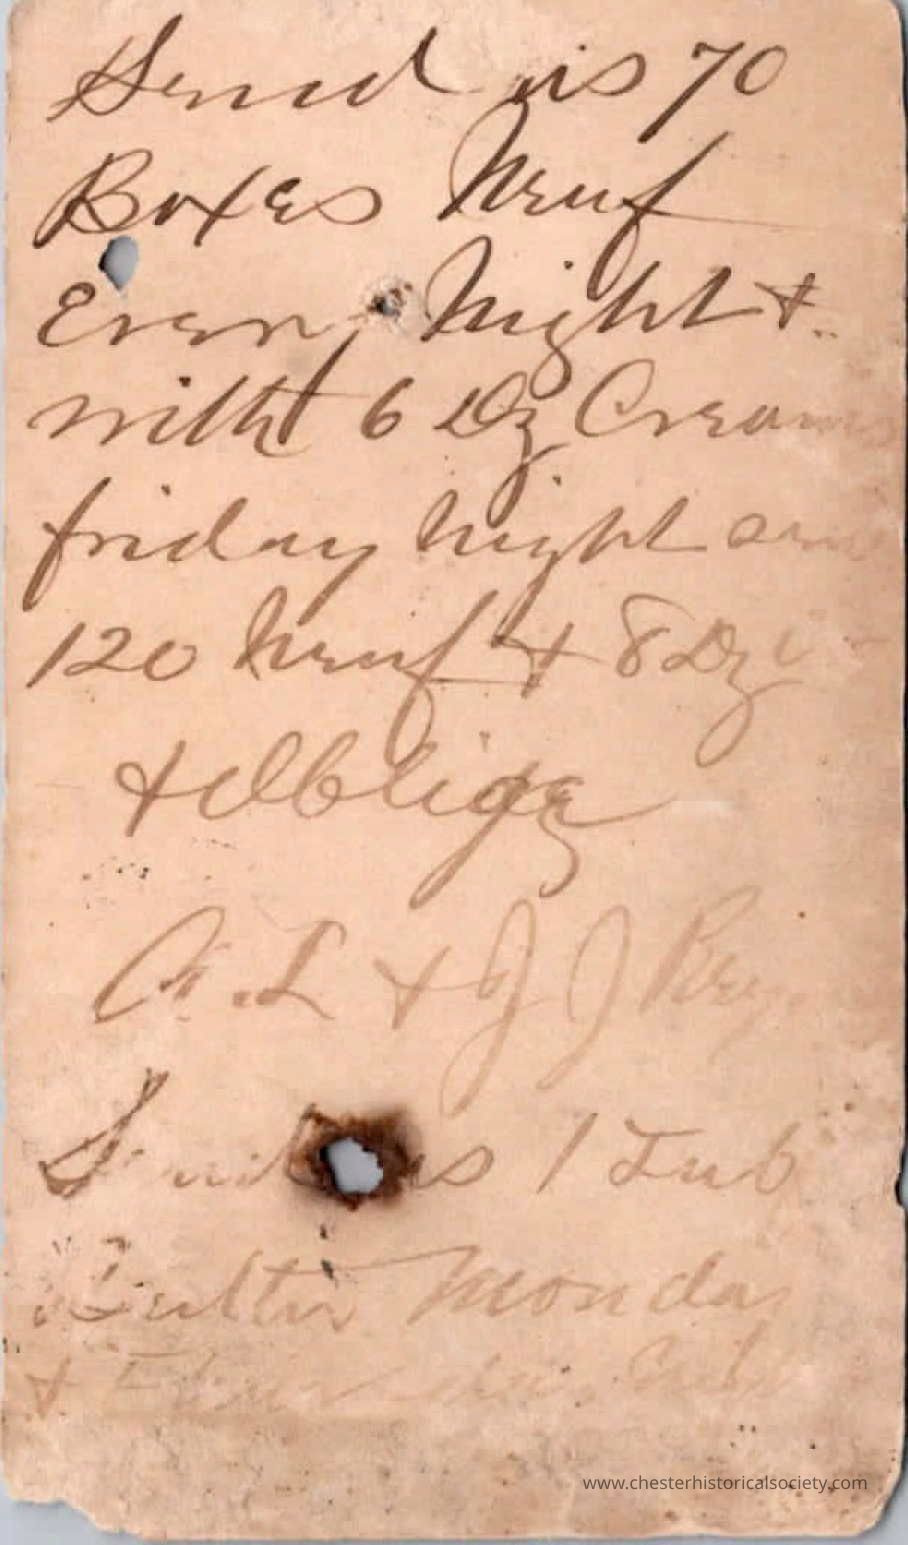 Send us 70
Boxes Neuf
Every Night &
with 6 Dz Creams
friday night and
120 Neuf & 8 Dz
& Oblige
A. L & J J Rey
Send us 1 Tub
Butter Monday
&
www.chesterhistoricalsociety.com